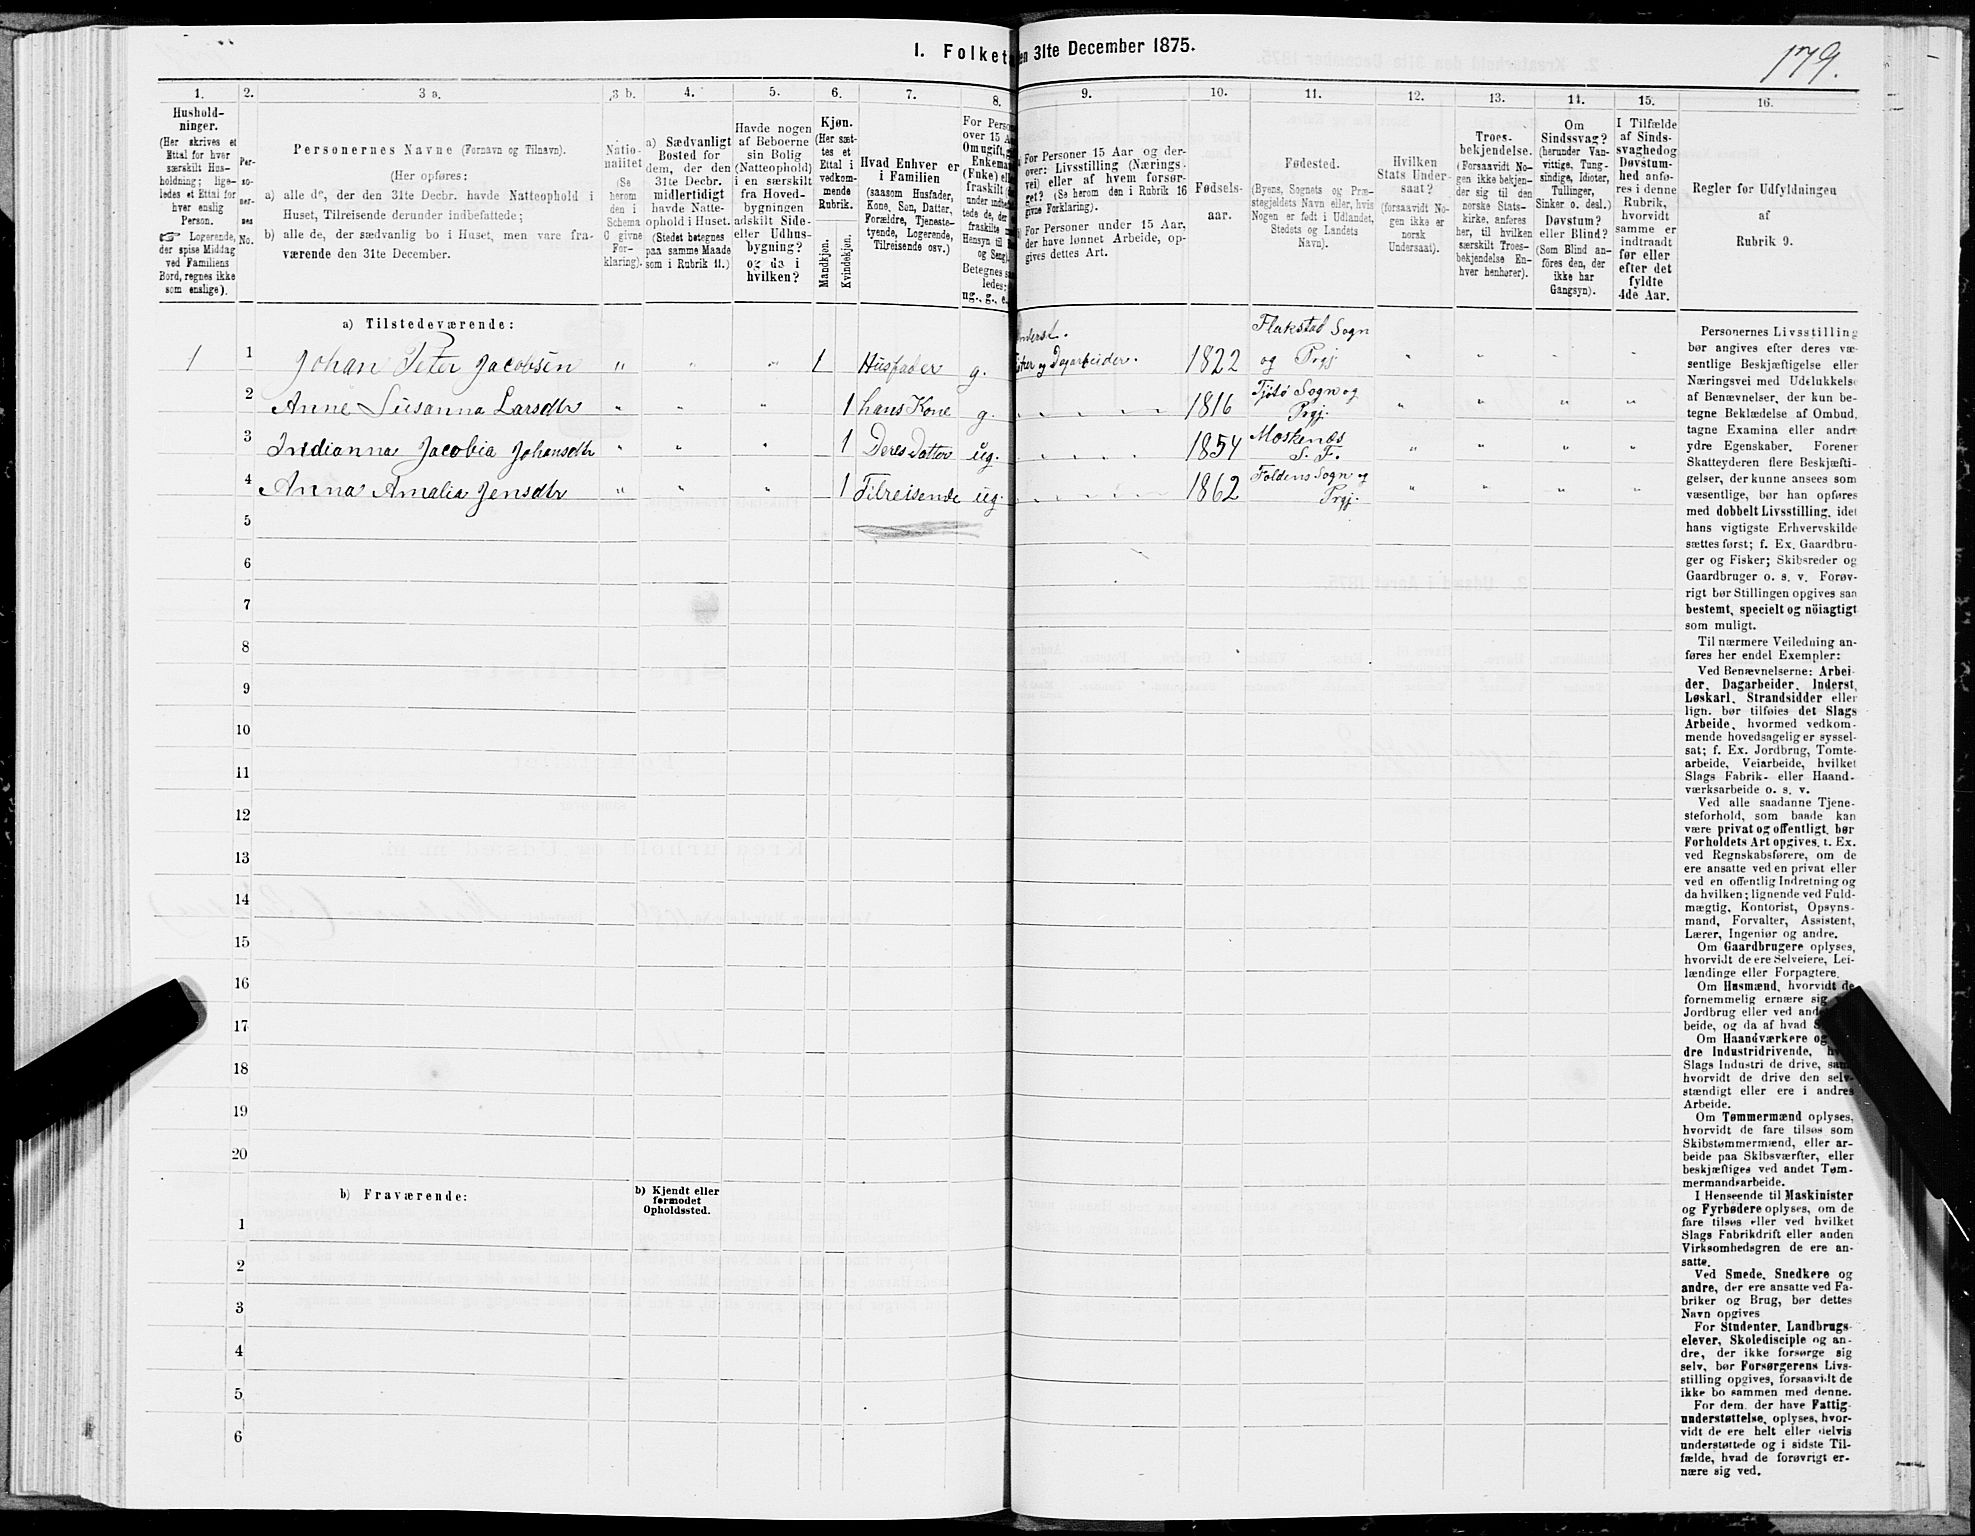 I. Folketa en 31te December 1875.
179.
1.
2.
3 a.
3 b.
4.
5.
6.
7.
8.
9.
10.
11.
12.
13.
14.
15.
16.
Hushold-
ninger.
(Her skrives et
Ettal for hver
særskilt Hus-
holdning; lige-
ledes et Ettal for
hver enslig
Person.
☞ Logerende,
der spise Middag
ved Familiens
Bord, regnes ikke
som enslige).
Per-
so-
ner-
nes
No.
Personernes Navne (Fornavn og Tilnavn).
(Her opføres:
a) alle de, der den 31te Decbr. havde Natteophold i
Huset, Tilreisende derunder indbefattede;
b) alle de, der sædvanlig bo i Huset, men vare fra-
værende den 31te December.
Natio-
nalitet
(Se
herom
den i
Schema
6 givne
For-
klaring).
a) Sædvanligt
Bosted for
dem, der den
31te Decbr.
midlertidigt
havde Natte-
ophold i Huset.
(Stedet betegnes
paa samme Maade
som i Rubrik 11.)
Havde nogen
af Beboerne
sin Bolig
(Natteophold)
i en særskilt
fra Hoved-
bygningen
adskilt Side-
eller Udhus-
bygning?
og da i
hvilken?
Kjøn.
(Her sæt-
tes et
Ettal i
vedkom-
mende
Rubrik.
Mandkjøn.
Kvindekjøn.
Hvad Enhver er
i Familien
(saasom Husfader,
Kone, Søn, Datter,
Forældre, Tjeneste-
tyende, Logerende,
Tilreisende osv.)
For Perso
over 15 A
Om ugift, g
Enkema
(Enke) ell
fraskilt
under indbefat-
tede de, der
fraskilte m
Hensyn til B
og Seng).
Betegnes s
ledes:
ug., g., e.
For Personer 15 Aar og der-
over: Livsstilling (Nærings-
vei) eller af hvem forsør-
get? (Se herom den i Rubrik 16
givne Forklaring).
For Personer under 15 Aar,
der have lønnet Arbeide, op-
gives dettes Art.
Fødsels-
aar.
Fødested.
(Byens, Sognets og Præ-
stegjeldets Navn, eller, hvis
Nogen er født i Udlandet,
Stedets og Landets
Navn).
Hvilken
Stats Under-
saat?
(forsaavidt No-
gen ikke er
norsk
Undersaat).
Troes-
bekjendelse.
(Forsaavidt No-
gen ikke bekjen-
der sig til den
norske Stats-
kirke, anføres
her, til hvilken
særskilt Troes-
bekjendelse En-
hver henhører).
Om
Sindssvag?
(herunder Van-
vittige, Tung-
sindige, Idioter,
Tullinger,
Sinker o. desl.)
Døvstum?
eller Blind?
(Som Blind an-
föres den, der
ikke har
Gangsyn).
I Tilfælde
af Sinds-
svaghed og
Døvstum-
hed anfø-
res i denne
Rubrik,
hvorvidt
samme er
indtraadt
før eller
efter det
fyldte
4de Aar.
Regler for Udfyldningen
af
Rubrik 9.
a) Tilstedeværende:
1 1 Johan Peter Jacobsen " " " 1 Husfader g. Inderst. Fisker og Dagarbeider. 1822 Flakstad Sogn og Prgj " " " "
2 Anne Susanna Larsdtr " " " 1 hans Kone g. 1816 Tjøtø Sogn og Prgj. " " " "
3 Indianna Jacobia Johansdtr " " " 1 Deres Datter ug. 1854 Moskenæs S. F. " " " "
4 Anna Amalia Jensdtr " " " 1 Tilreisende ug. 1862 Foldens Sogn og Prgj. " " " "
5
6
7
8
9
10
11
12
13
14
15
16
17
18
19
20
b) Fraværende:
b) Kjendt eller
formodet
Opholdssted.
1
2
3
4
5
6
Personernes Livsstilling
bør angives efter deres væ-
sentlige Beskjæftigelse eller
Næringsvei med Udelukkelse
af Benævnelser, der kun be-
tegne Beklædelse af Ombud,
tagne Examina eller andre
ydre Egenskaber. Forener
Skatteyderen flere Beskjæfti-
gelser, der kunne ansees som
væsentlige, bør han opføres
med dobbelt Livsstilling, idet
hans vigtigste Erhvervskilde
sættes først; f. Ex. Gaardbru-
ger og Fisker; Skibsreder og
Gaardbruger o. s. v. Forøv-
rigt bør Stillingen opgives saa
bestemt, specielt og nöiagtigt
som muligt.
Til nærmere Veiledning an-
føres her endel Exempler:
Ved Benævnelserne: Arbei-
der, Dagarbeider, Inderst,
Løskarl, Strandsidder eller
lign. bør tilføies det Slags
Arbeide, hvormed vedkom-
mende hovedsagelig er syssel-
sat; f. Ex. Jordbrug, Tomte-
arbeide, Veiarbeide, hvilket
Slags Fabrik- eller Haand-
værksarbeide o. s. v.
Ved alle saadanne Tjene-
steforhold, som baade kan
være privat og offentligt, bør
Forholdets Art opgives, t. Ex.
ved Regnskabsførere, om de
ere ansatte ved en privat eller
ved en offentlig Indretning og
da hvilken; lignende ved Fuld-
mægtig, Kontorist, Opsyns-
mand, Forvalter, Assistent,
Lærer, Ingeniør og andre.
Om Gaardbrugere oplyses,
hvorvidt de ere Selveiere, Lei-
lændinge eller Forpagtere.
Om Husmænd, hvorvidt de
fornemmelig ernære sig
Jordbrug eller ved and
beide, og da af hvad S
Om Haandværkere og
dre Industridrivende,
Slags Industri de drive, samt
hvorvidt de drive den selv-
stændigt eller ere i andres
Arbeide.
Om Tømmermænd oplyses,
hvorvidt de fare tilsøs som
Skibstømmermænd, eller ar-
beide paa Skibsværfter, eller
beskjæftiges ved andet Tøm-
mermandsarbeide.
I Henseende til Maskinister
og Fyrbødere oplyses, om de
fare tilsøs eller ved hvilket
Slags Fabrikdrift eller anden
Virksomhedsgren de ere an-
satte.
Ved Smede, Snedkere og
andre, der ere ansatte ved Fa-
briker og Brug, bør dettes
Navn opgives
For Studenter, Landbrugs-
elever, Skoledisciple og an-
dre, der ikke forsørge sig
selv, bør Forsørgerens Livs-
stilling opgives, forsaavidt de
ikke bo sammen med denne.
For dem, der have Fattig-
understøttelse, oplyses, hvor-
vidt de ere helt eller delvis
understøttede og i sidste Til-
fælde, hvad de forøvrigt er-
nære sig ved.